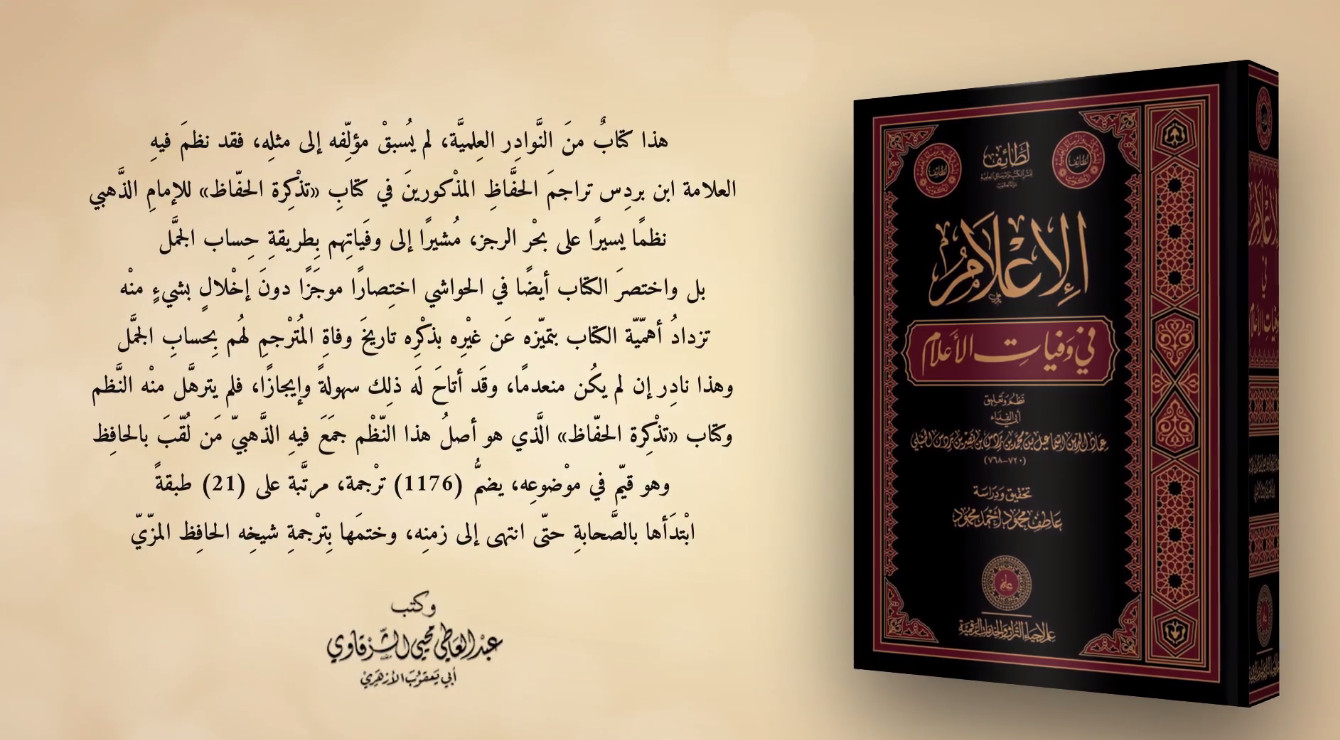 هذا كتابٌ منَ النَّوادِر العِلميَّة، لم يُسبقْ مؤلِّفه إلى مثلِه، فقد نظمَ فيهِ
العلامة ابن بردِس تراجمَ الحفَّاظِ المذْكورينَ في كتابِ «تذْكِرة الحفّاظ» للإمامِ الذَّهبي
نظمًا يسيرًا على بحْر الرجز، مُشيرًا إلى وفَياتِهم بِطريقةِ حِساب الجمَّل
بل واختصرَ الكتاب أيضًا في الحواشي اختِصارًا موجَزًا دونَ إخْلالٍ بشيءٍ منْه
تزدادُ أهمّيّة الكتاب بتميّزه عَن غيْرِه بذكْرِه تاريخَ وفاةِ المُترْجمِ لهُم بِحسابِ الجمَّل
وهذا نادِر إن لم يكُن منعدمًا، وقَد أتاحَ لَه ذلِك سهولةً وإيجازًا، فلم يترهَّل منْه النَّظم
وكتاب «تذْكِرة الحفّاظ» الَّذي هو أصلُ هذا النّظْم جمَعَ فيهِ الذَّهبيّ مَن لُقّبَ بالحافِظ
وهو قيّم في موْضوعِه، يضمُّ (1176) ترْجمة، مرتَّبة على (21) طبقةً
ابْتدَأها بالصَّحابةِ حتّى انتهى إلى زمنِه، وختمَها بِترْجمةِ شيخِه الحافِظ المزّيّ
وكتب
عبْد العَاطي محيي الشّرْقاوي
أبي يَعقوبَ الأزهَريّ
لطائف
لطائف
لطائف
الإِعْلَامُ
في وَفيات الأَعلام
نظم وتعليق
أبي الفداء
عماد الدين إسماعيل بن محمد بن بردس بن نصر بن بردس الحنبلي
(٧٢٠-٧٦٨)
تحقيق ودراسة
عاطف محمود أحمد محمود
علم لإحياء التراث والخدمات الرقمية
الإعلام
في
وفيات الأعلام